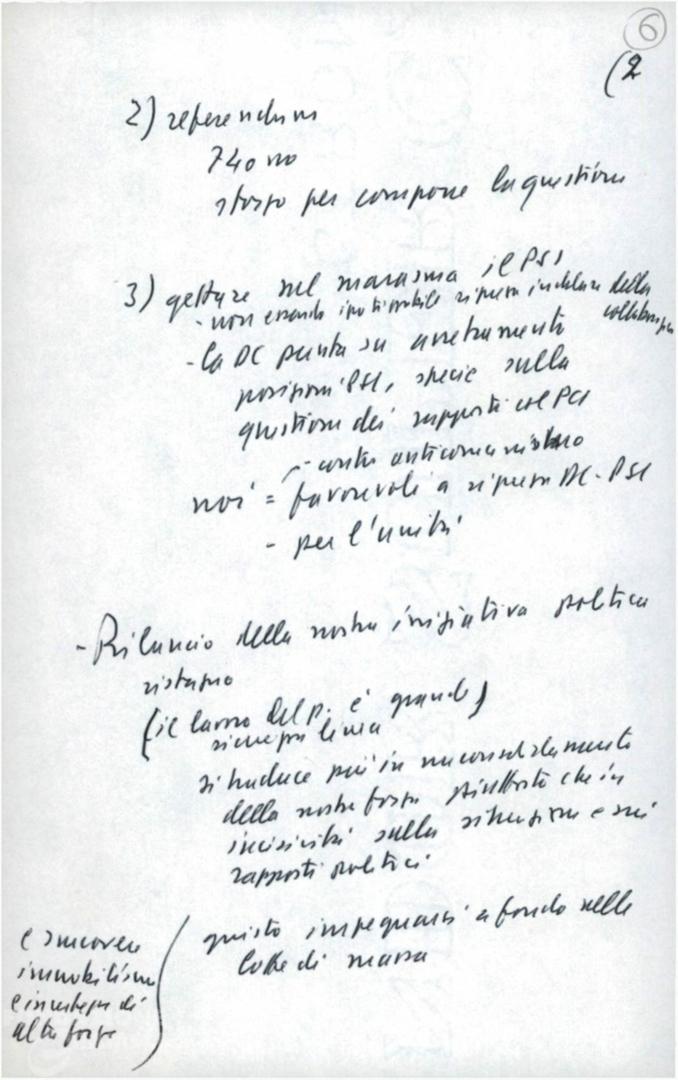 6
(2
2) referendum
740 no
sforzo per comporre la questione
3) gettare nel marasma il PSI
- non essendo ipotizzabile ripresa della
collaboraz
- la DC punta su arretramento
posizioni PSI, specie sulla
questione dei rapporti col PCI
- contro anticomunismo
noi = favorevoli a ripresa DC-PSI
- per l'unità
- Rilancio della nostra iniziativa politica
ristagno
(il lavoro del p. è grande)
linea
si traduce più in un consolidamento
della nostra forza piuttosto che in
incisività sulla situazione e sui
rapporti politici
giusto impegnarsi a fondo nelle
lotte di massa
e smuovere
immobilismo
e incertezze di
altre forze